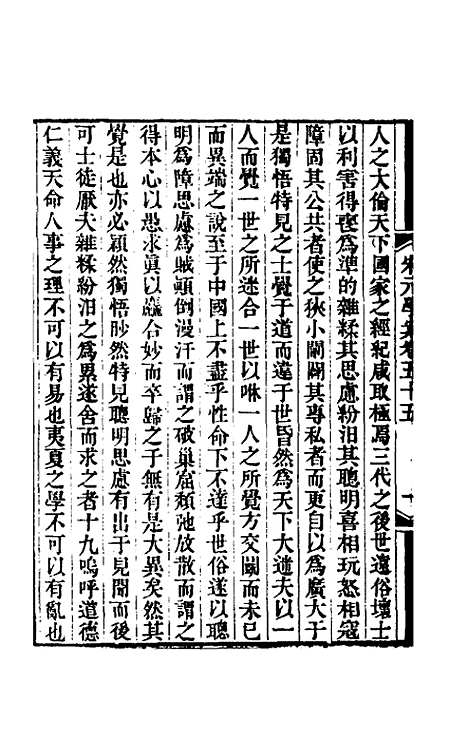 宋元學案卷五十五
十
人之大倫天下國家之經紀咸取極焉三代之後世遠俗壞士
以利害得喪為準的雜糅其思慮紛汨其聰明喜相玩怒相寇
障固其公共者使之狹小闡闢其專私者而更自以為廣大于
是獨悟特見之士覺于道而違于世昏然為天下大迷夫以一
人而覺一世之所迷合一世以咻一人之所覺方交鬭而未已
而異端之說至于中國上不盡乎性命下不達乎世俗遂以聰
明為障思慮為賊顛倒漫汗而謂之破巢窟頹弛放散而謂之
得本心以愚求真以麤合妙而卒歸之于無有是大異矣然其
覺是也亦必穎然獨悟眇然特見聰明思慮有出于見聞而後
可士徒厭夫雜糅紛汨之為累遂舍而求之者十九嗚呼道德
仁義天命人事之理不可以有易也夷夏之學不可以有亂也